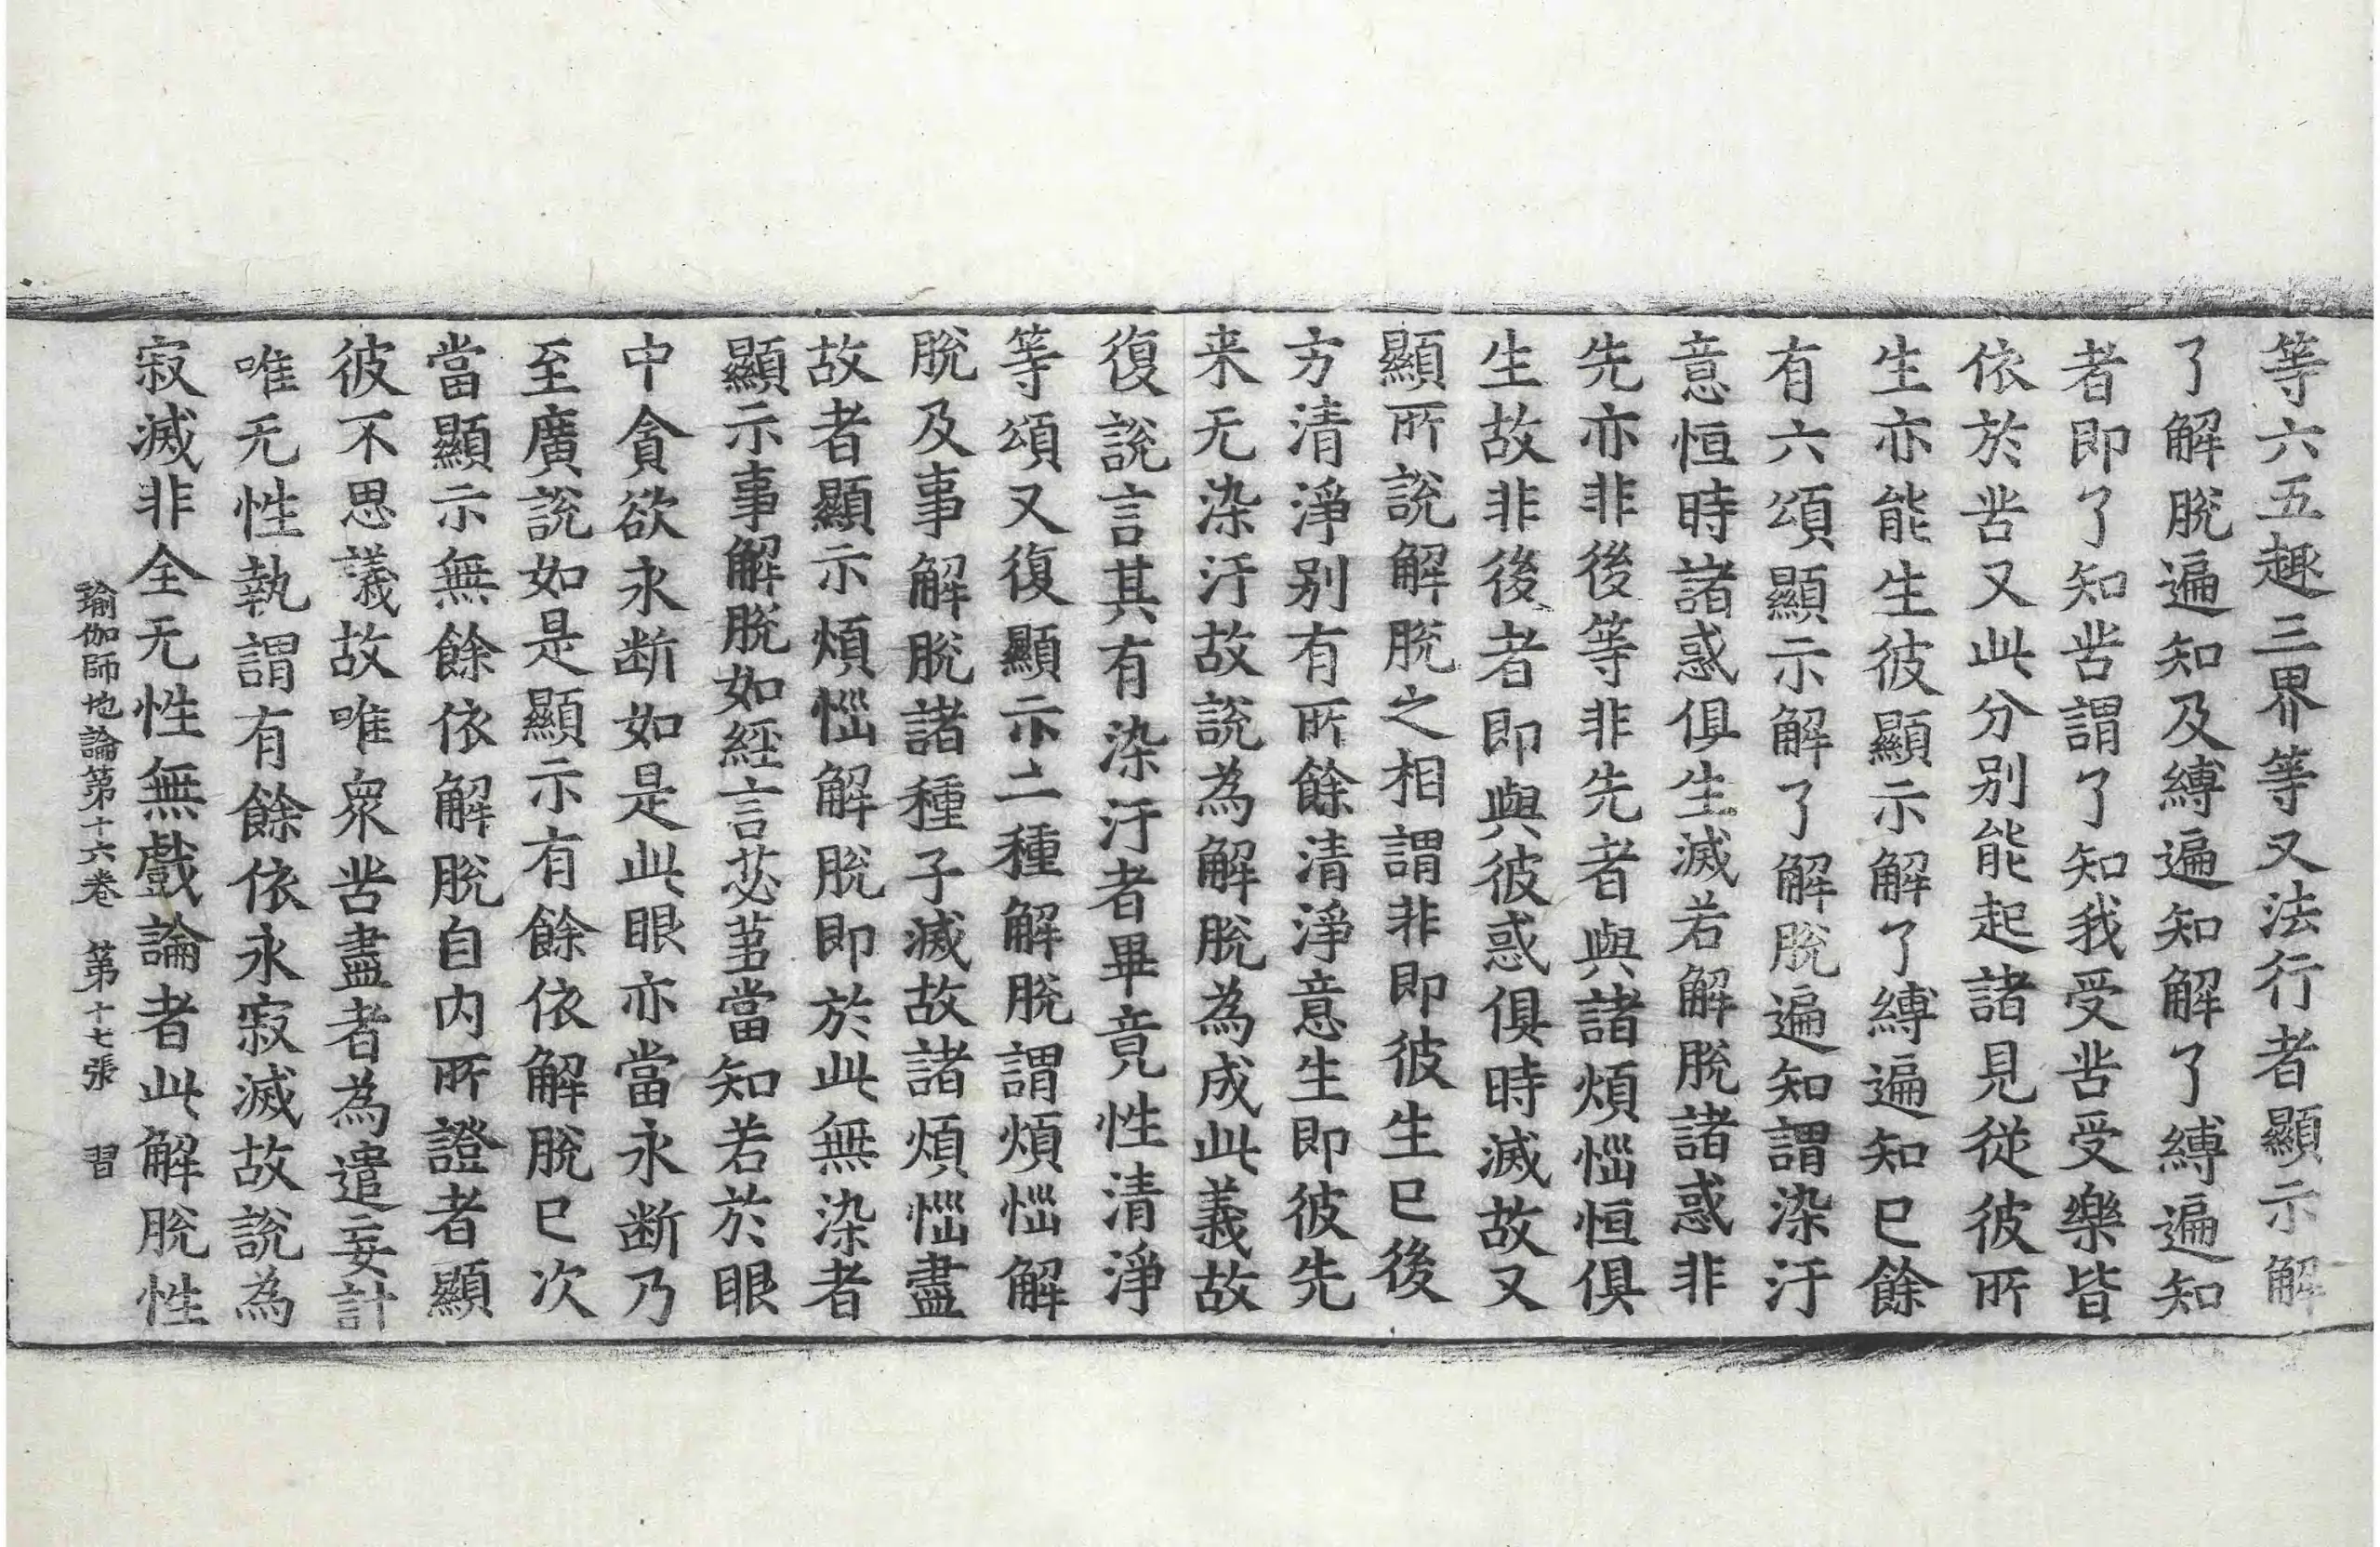 等六五趣三界等又法行者顯示解
了解脫遍知及縛遍知解了縛遍知
者即了知苦謂了知我受苦受樂皆
依於苦又此分別能起諸見從彼所
生亦能生彼顯示解了縛遍知已餘
有六頌顯示解了解脫遍知謂染汙
意恒時諸惑俱生滅若解脫諸惑非
先亦非後等非先者與諸煩惱恒俱
生故非後者即與彼惑俱時滅故又
顯所說解脫之相謂非即彼生已後
方清淨別有所餘清淨意生即彼先
来无染汙故說為解脫為成此義故
復說言其有染汙者畢竟性清淨
等頌又復顯示二種解脫謂煩惱解
脫及事解脫諸種子滅故諸煩惱盡
故者顯示煩惱解脫即於此無染者
顯示事解脫如經言苾蒭當知若於眼
中貪欲永断如是此眼亦當永断乃
至廣說如是顯示有餘依解脫已次
當顯示無餘依解脫自内所證者顯
彼不思議故唯衆苦盡者為遣妄計
唯无性執謂有餘依永寂滅故說為
寂滅非全无性無戲論者此解脫性
瑜伽師地論第十六卷　第十七張　習